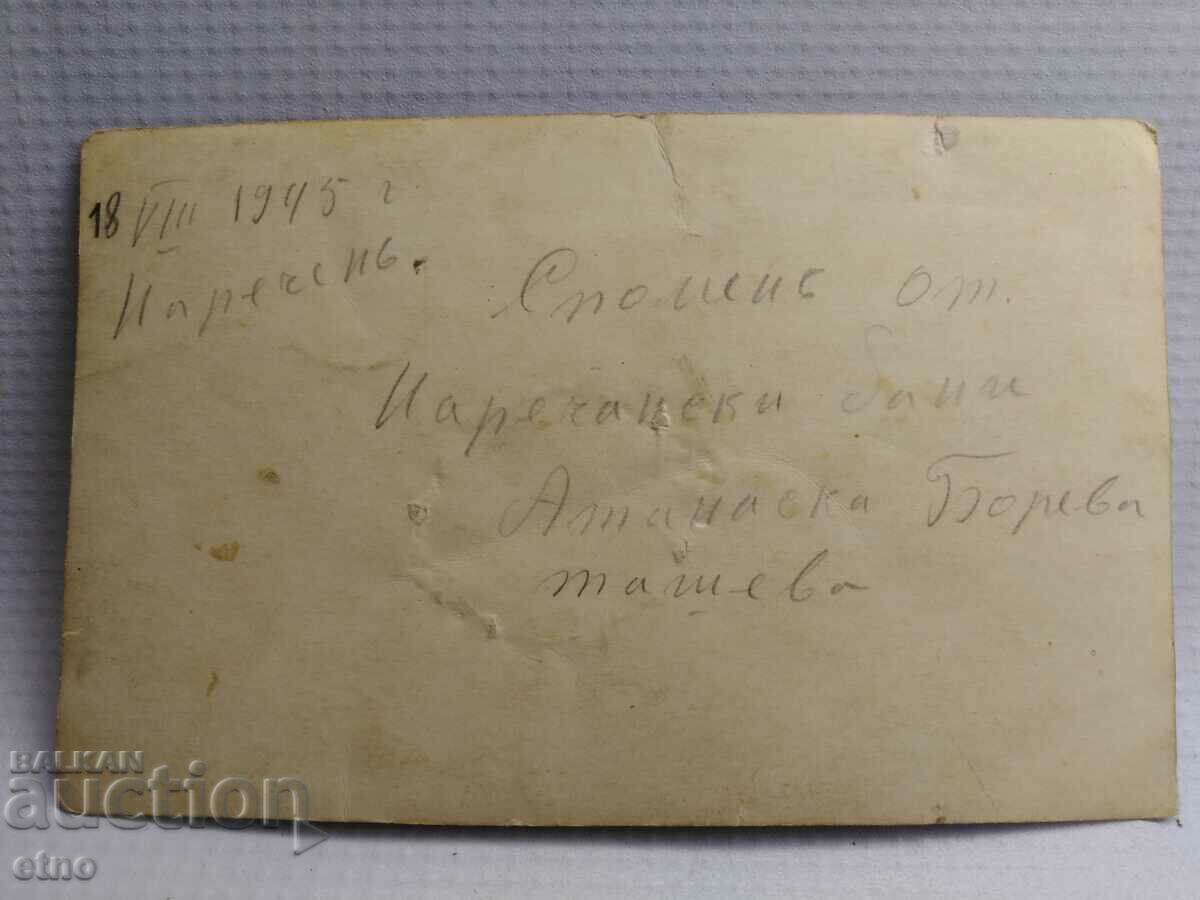 18 VIII 1945 г.
Нареченъ.
Споменъ от.
Наречански бани
Атанаска Борева
ташева
BALKAN
auction
etno